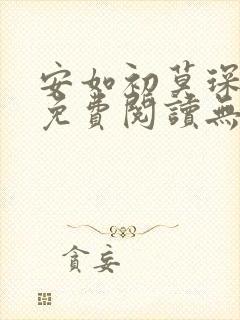 安如初莫琛
免費閱讀無
貪妄